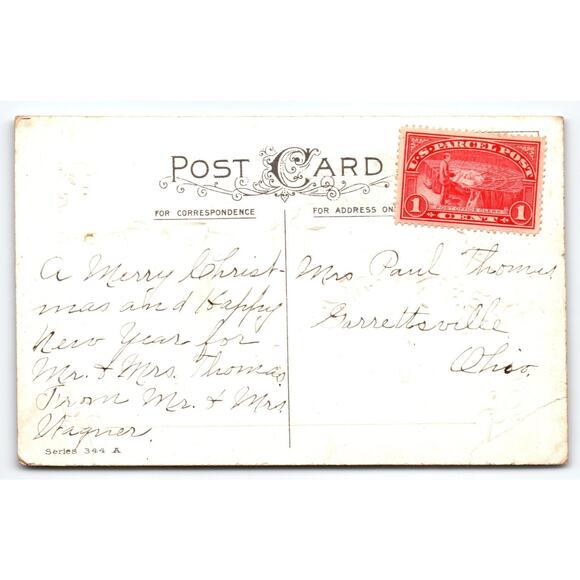 POST CARD
FOR CORRESPONDENCE
FOR ADDRESS ON
U.S. PARCEL POST
POST OFFICE CLERK
1 CENT 1
A Merry Christ-
mas and Happy
New Year for
Mr. & Mrs. Thomas
From Mr. & Mrs
Wagner.
Mrs Paul Thomas
Garrettsville
Ohio.
Series 344 A